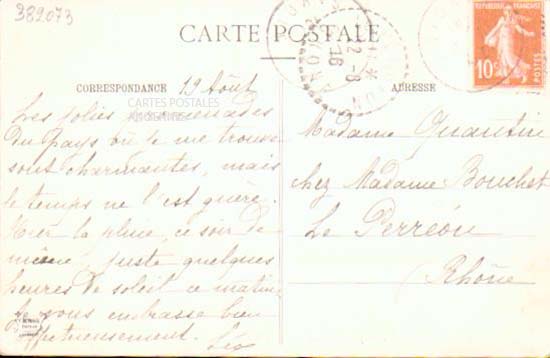 382073
CARTE POSTALE
RÉPUBLIQUE FRANÇAISE
10c
POSTES
CORRESPONDANCE
ADRESSE
19 Août
CARTES POSTALES
ANCIENNES
Les jolies promenades
du pays où je me trouve
sont charmantes, mais
le temps ne l'est guère.
Hier la pluie, ce soir de
même, juste quelques
heures de soleil ce matin.
Je vous embrasse bien
affectueusement.
Madame Quantin
chez Madame Bouchet
Le Perréon
Rhône